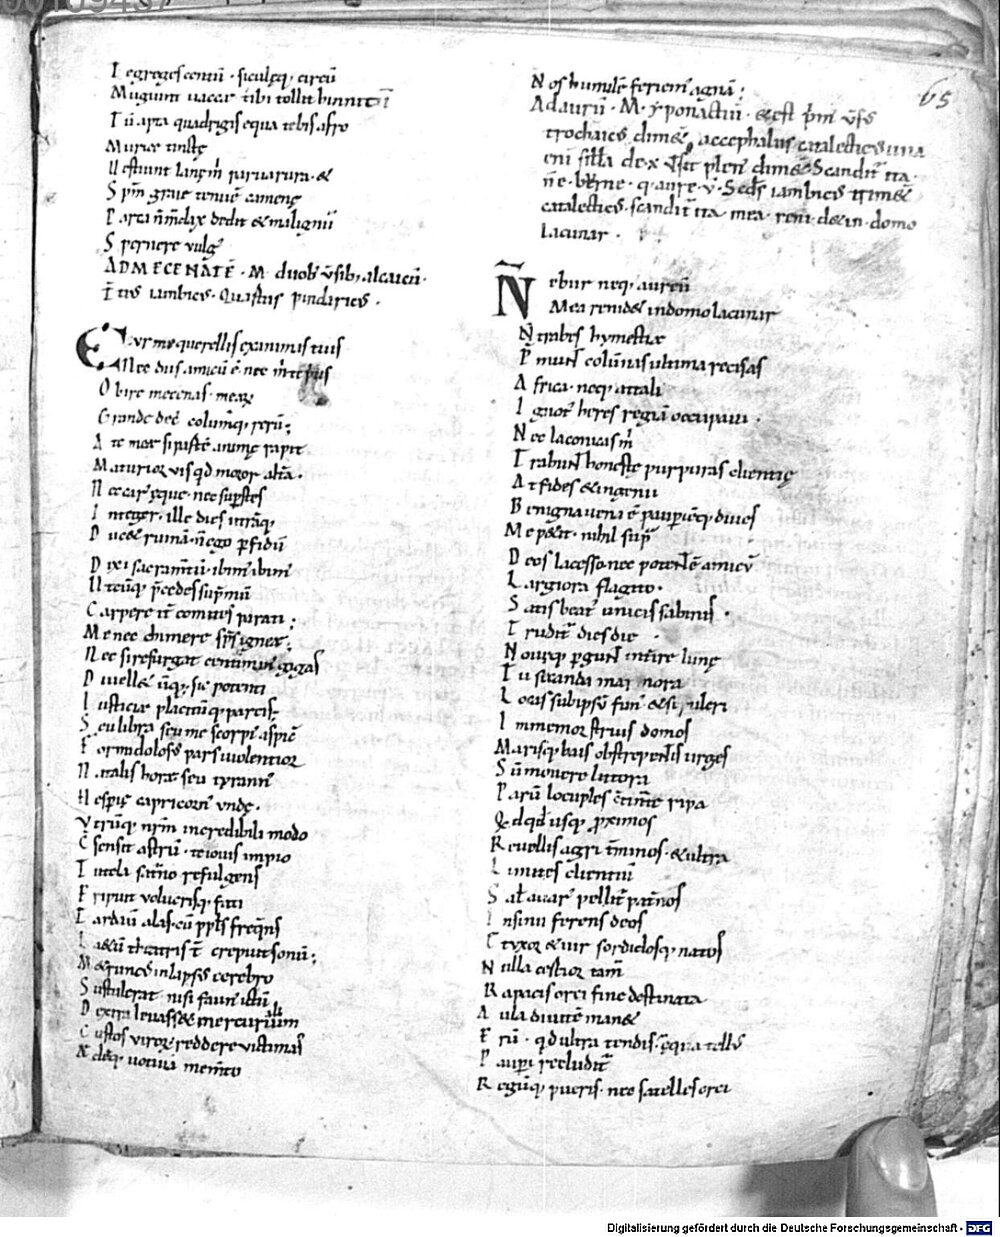 Te greges centū · siculęq; circū
Mugiunt uaccae tibi tollit hinnitū
Tū apta quadrigis equa te bis afro
Murice tinctę
Uestiunt lanę; m parua rura · &
Sp̄m graię tenuē camenę
Parca n̄ m̄dax dedit & malignū
Spernere vulg᷒
AD MECENATĒ · M · duob; v̄sib; alcaicū ·
iambic᷒ · pindaric᷒ ·
Cur me querellis exanimas tuis
Nec dis amicū ē nec m te prius
Obire mecenas mearȝ
Grande dec᷒ columnq; rerū;
A te meae si partē animę rapit
Maturior vis qd moror altā ·
Nec car᷒ ęque · nec sup̄stes
Integer · ille dies utrāq;
Duc& ruinā · n̄ ego p̄fidū
Dixi sacram̄tū · ibim᷒ ibim᷒
Utcūq; p̄cedes sup̄mū
Carpere it̄ comites parati;
Me nec chimerę sp̄s igneę;
Nec si resurgat centiman᷒ gigas
Diuell& ūq; sic potenti
Iusticiae placitūq; parcis;
Seu libra seu me scorpi᷒ aspic̄
Formidolos᷒ pars uiolentior
Natalis horae seu tyrann᷒
Hesperię capricorn᷒ undę ·
Vtrūq; nr̄m incredibili modo
Csensit astrū · te iouis impio
Tutela saturno refulgens
Eripuit uolucrisq; fati
Tardauit alas · cū ppl̄s frequens
Laetū theatris t̄ crepuit sonū;
Me trunc᷒ inlapsus cerebro
Sustulerat · nisi faun᷒ ictū
Dextra leuass& mercurialiū
Custos virorȝ reddere victimas
Aedēq; uotiuā mem̄to
Nos humilē feriem᷒ agnā;
65
Ad aurū · M · yponactiū · & est p̄m᷒ v̄s᷒
trochaic᷒ dim& accephalus catalectic᷒ una
eni sill̄a de · x v̄sit plen᷒ dim& Scandit̄ ita ·
n̄e · b · q · aure · v · Sed᷒ iambic᷒ trim&
catalectic᷒ · scandit̄ ita mea · reni · d& in · domo
lacunar ·
Ñ ebur neq; aureū
Mea renid& in domo lacunar
N̄ trabes hymettiae
P̄munt colūnas ultima recisas
Africa · neq; attali
Ignot᷒ heres regiā occupaui ·
Nec laconicas m
Trahunt honeste purpuras clientę
At fides & ingenii
Benigna uena ē pauperēq; diues
Me p&it · nihil sup̄
Deos lacesso nec potentē amicū
Largiora flagito ·
Satis beat᷒ unicis sabinis ·
Trudit̄ dies die
Nouęq; pergunt int̄ire lunę
Tu secanda marmora
Locas sub ipsū fun᷒ & sepulcri
Immemor struis domos
Marisq; bais obstrepentis urges
Sūmouere littora
Parū locuples c̄tin̄te ripa
Q̄d qd usq; proximos
Reuellis agri t̄minos · & ultra
Limites clientiū
Salis auar᷒ pellit̄ patn̄os
In sinu ferens deos
Et uxor & uir sordidosq; natos
Nulla certior tam̄
Rapacis orci fine destinata
Aula diuitē man&
Erū · qd ultra tendis · ęqua tell᷒
Paup̄i recludit̄
Regūq; pueris · nec satelles orci
Digitalisierung gefördert durch die Deutsche Forschungsgemeinschaft - DFG